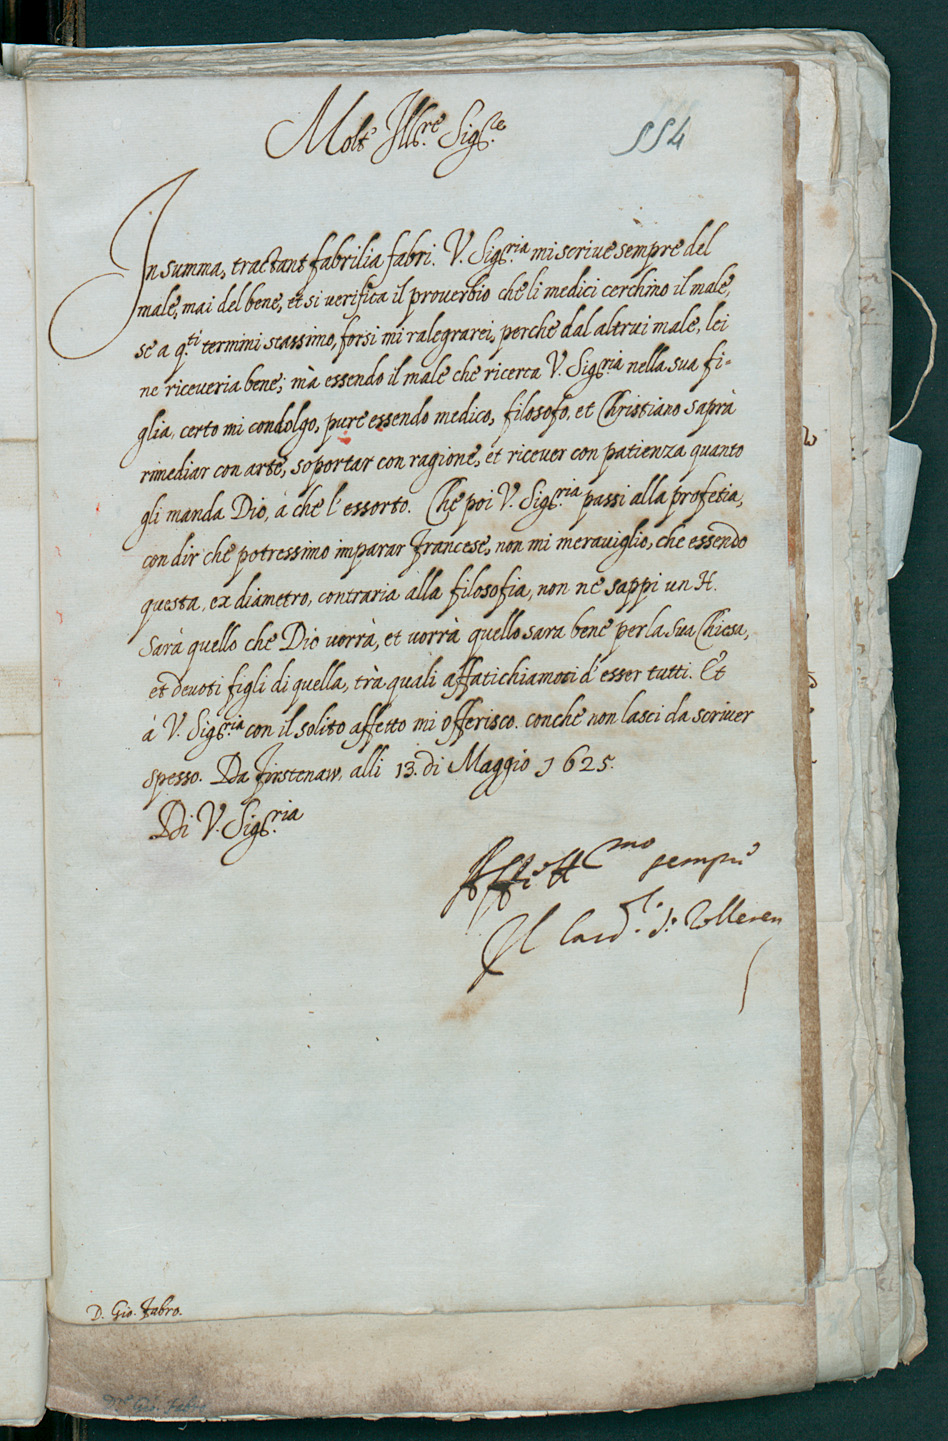 Molt' Ill.re Sig.re
554
In summa, tractant fabrilia fabri. V. Sig.ria mi scriue sempre del
male, mai del bene, et si verifica il prouerbio che li medici cerchino il male,
se a q.ti termini stassimo, forsi mi ralegrarei, perche dal altrui male, lei
ne riceueria bene; mà essendo il male che ricerca V. Sig.ria nella sua fi-
glia, certo mi condolgo, pure essendo medico, filosofo, et Christiano saprà
rimediar con arte, soportar con ragione, et riceuer con patienza quanto
gli manda Dio, à che l'essorto. Che poi V. Sig.ria passi alla profetia,
con dir che potressimo imparar Francese, non mi merauiglio, che essendo
questa, ex diametro, contraria alla filosofia, non ne sappi un H.
Sarà quello che Dio uorrà, et uorrà quello sara bene per la sua Chiesa,
et deuoti figli di quella, trà quali affatichiamoci d'esser tutti. Et
à V. Sig.ria con il solito affetto mi offerisco. conche non lasci da scriuer
spesso. Da Firstenaw. alli 13. di Maggio 1625.
Di V. Sig.ria
Affett.mo sempre
Il Card.l di Zolleren
D. Gio. Fabro.
Gio. Fabro